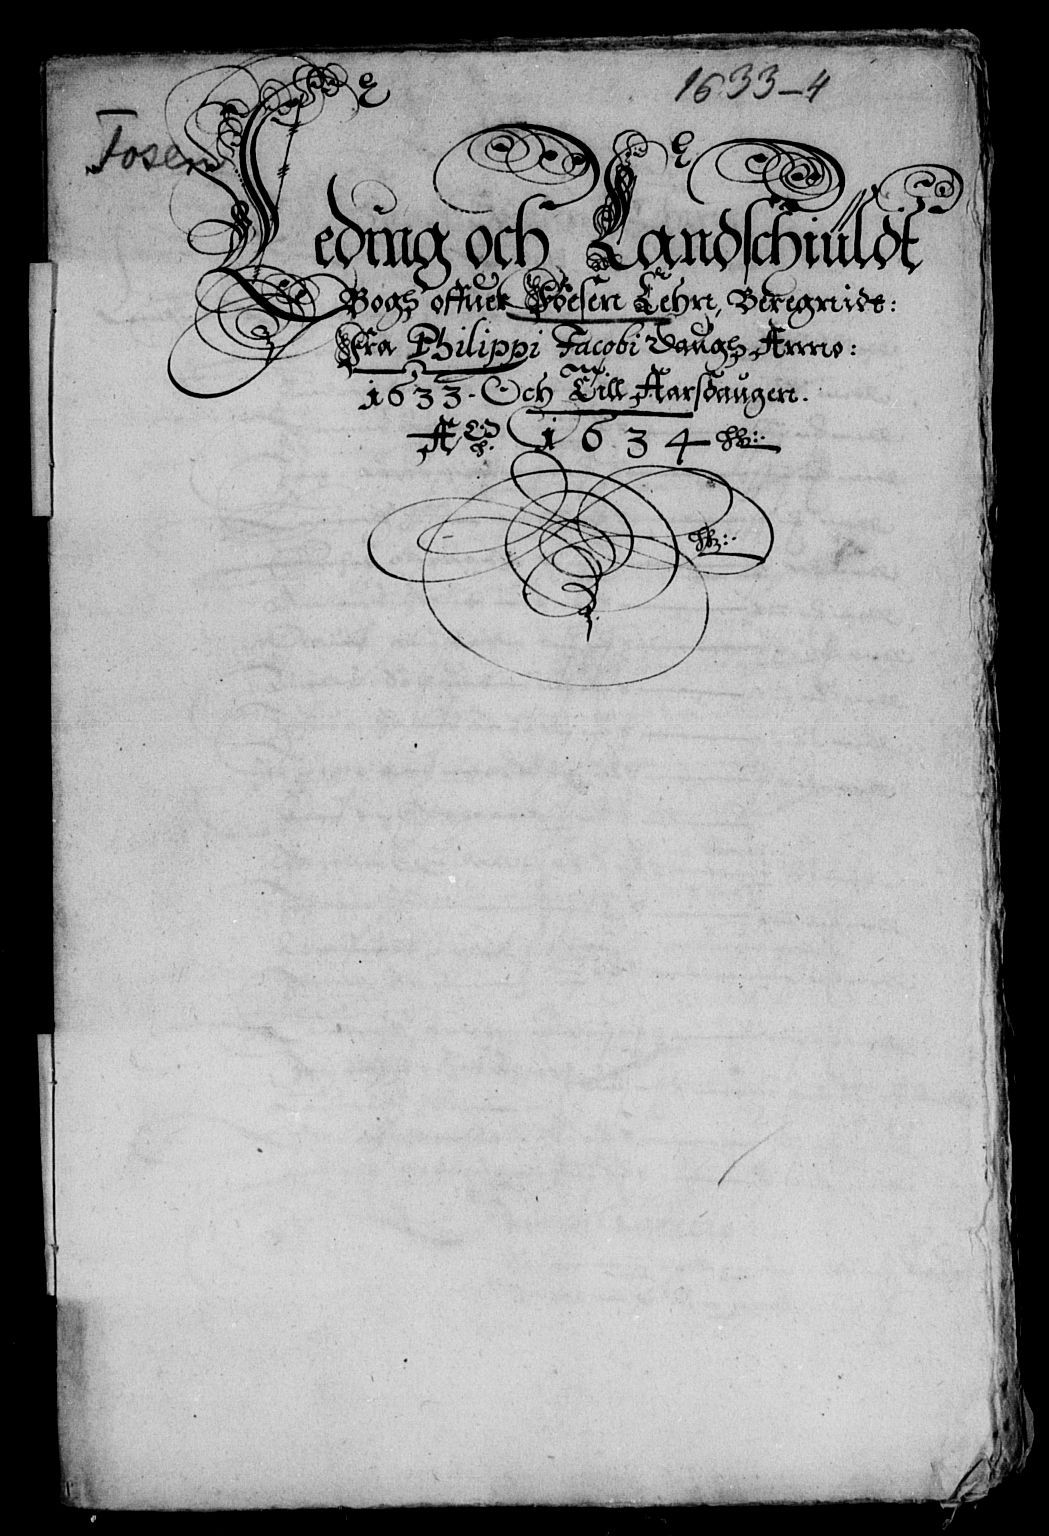 1633-4
Fosen
Leding och Landschiuldt
Bogh offuer Foesen Lehn, Beregnidt:
Fra Philippi Jacobi Daugh Anno:
1633. Och Till Aarsdaugen.
Aº 1634